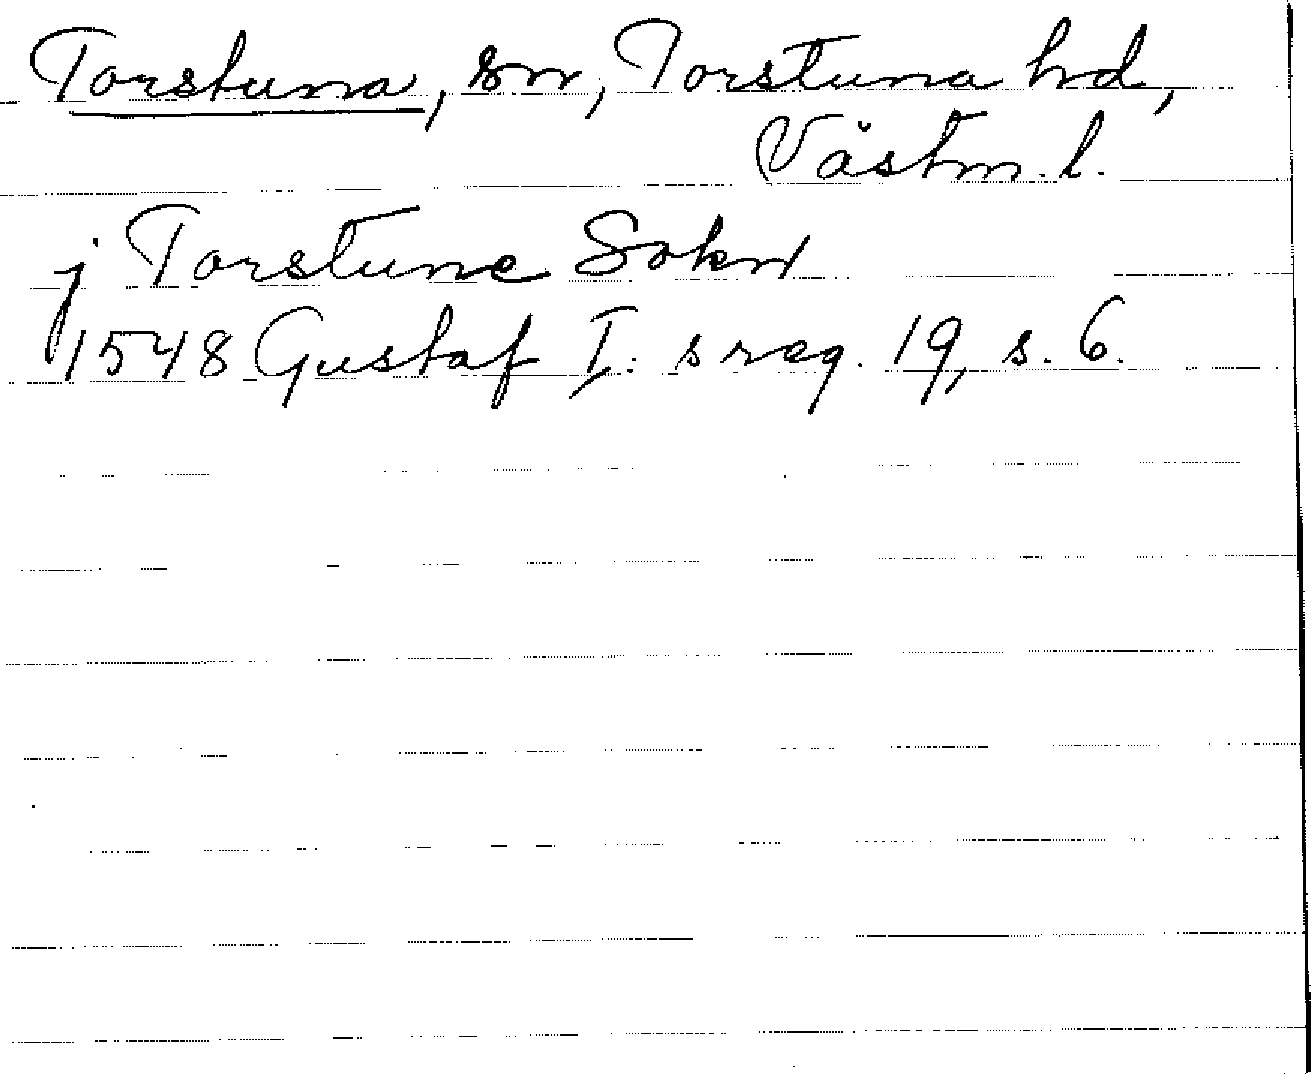 Torstuna, sn, Torstuna hd,
Västm. l.
j Torstune Sokn
1548 Gustaf I: s reg. 19, s. 6.